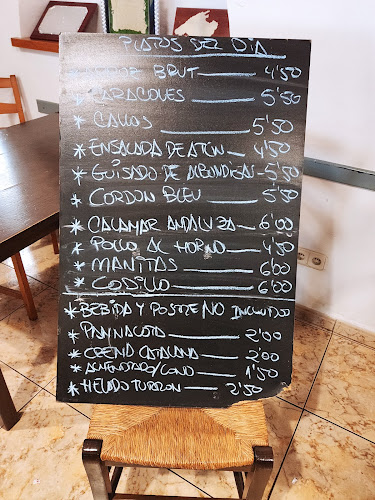 PLATOS DEL DIA
BRUT 4'50
* CARACOLES 5'50
* CALLOS 5'50
* ENSALADA DE ATUN 4'50
* GUISADO DE ALBONDIGAS 5'50
* CORDON BLEU 5'50
* CALAMAR ANDALUZA 6'00
* POLLO AL HORNO 4'50
* MANITAS 6'00
* CODILLO 6'00
* BEBIDA Y POSTRE NO INCLUIDO
* PANNACOTA 2'00
* CREMA CATALANA 2'00
* ALMENDRADO/CONO 1'50
* HELADO TURRON 2'50